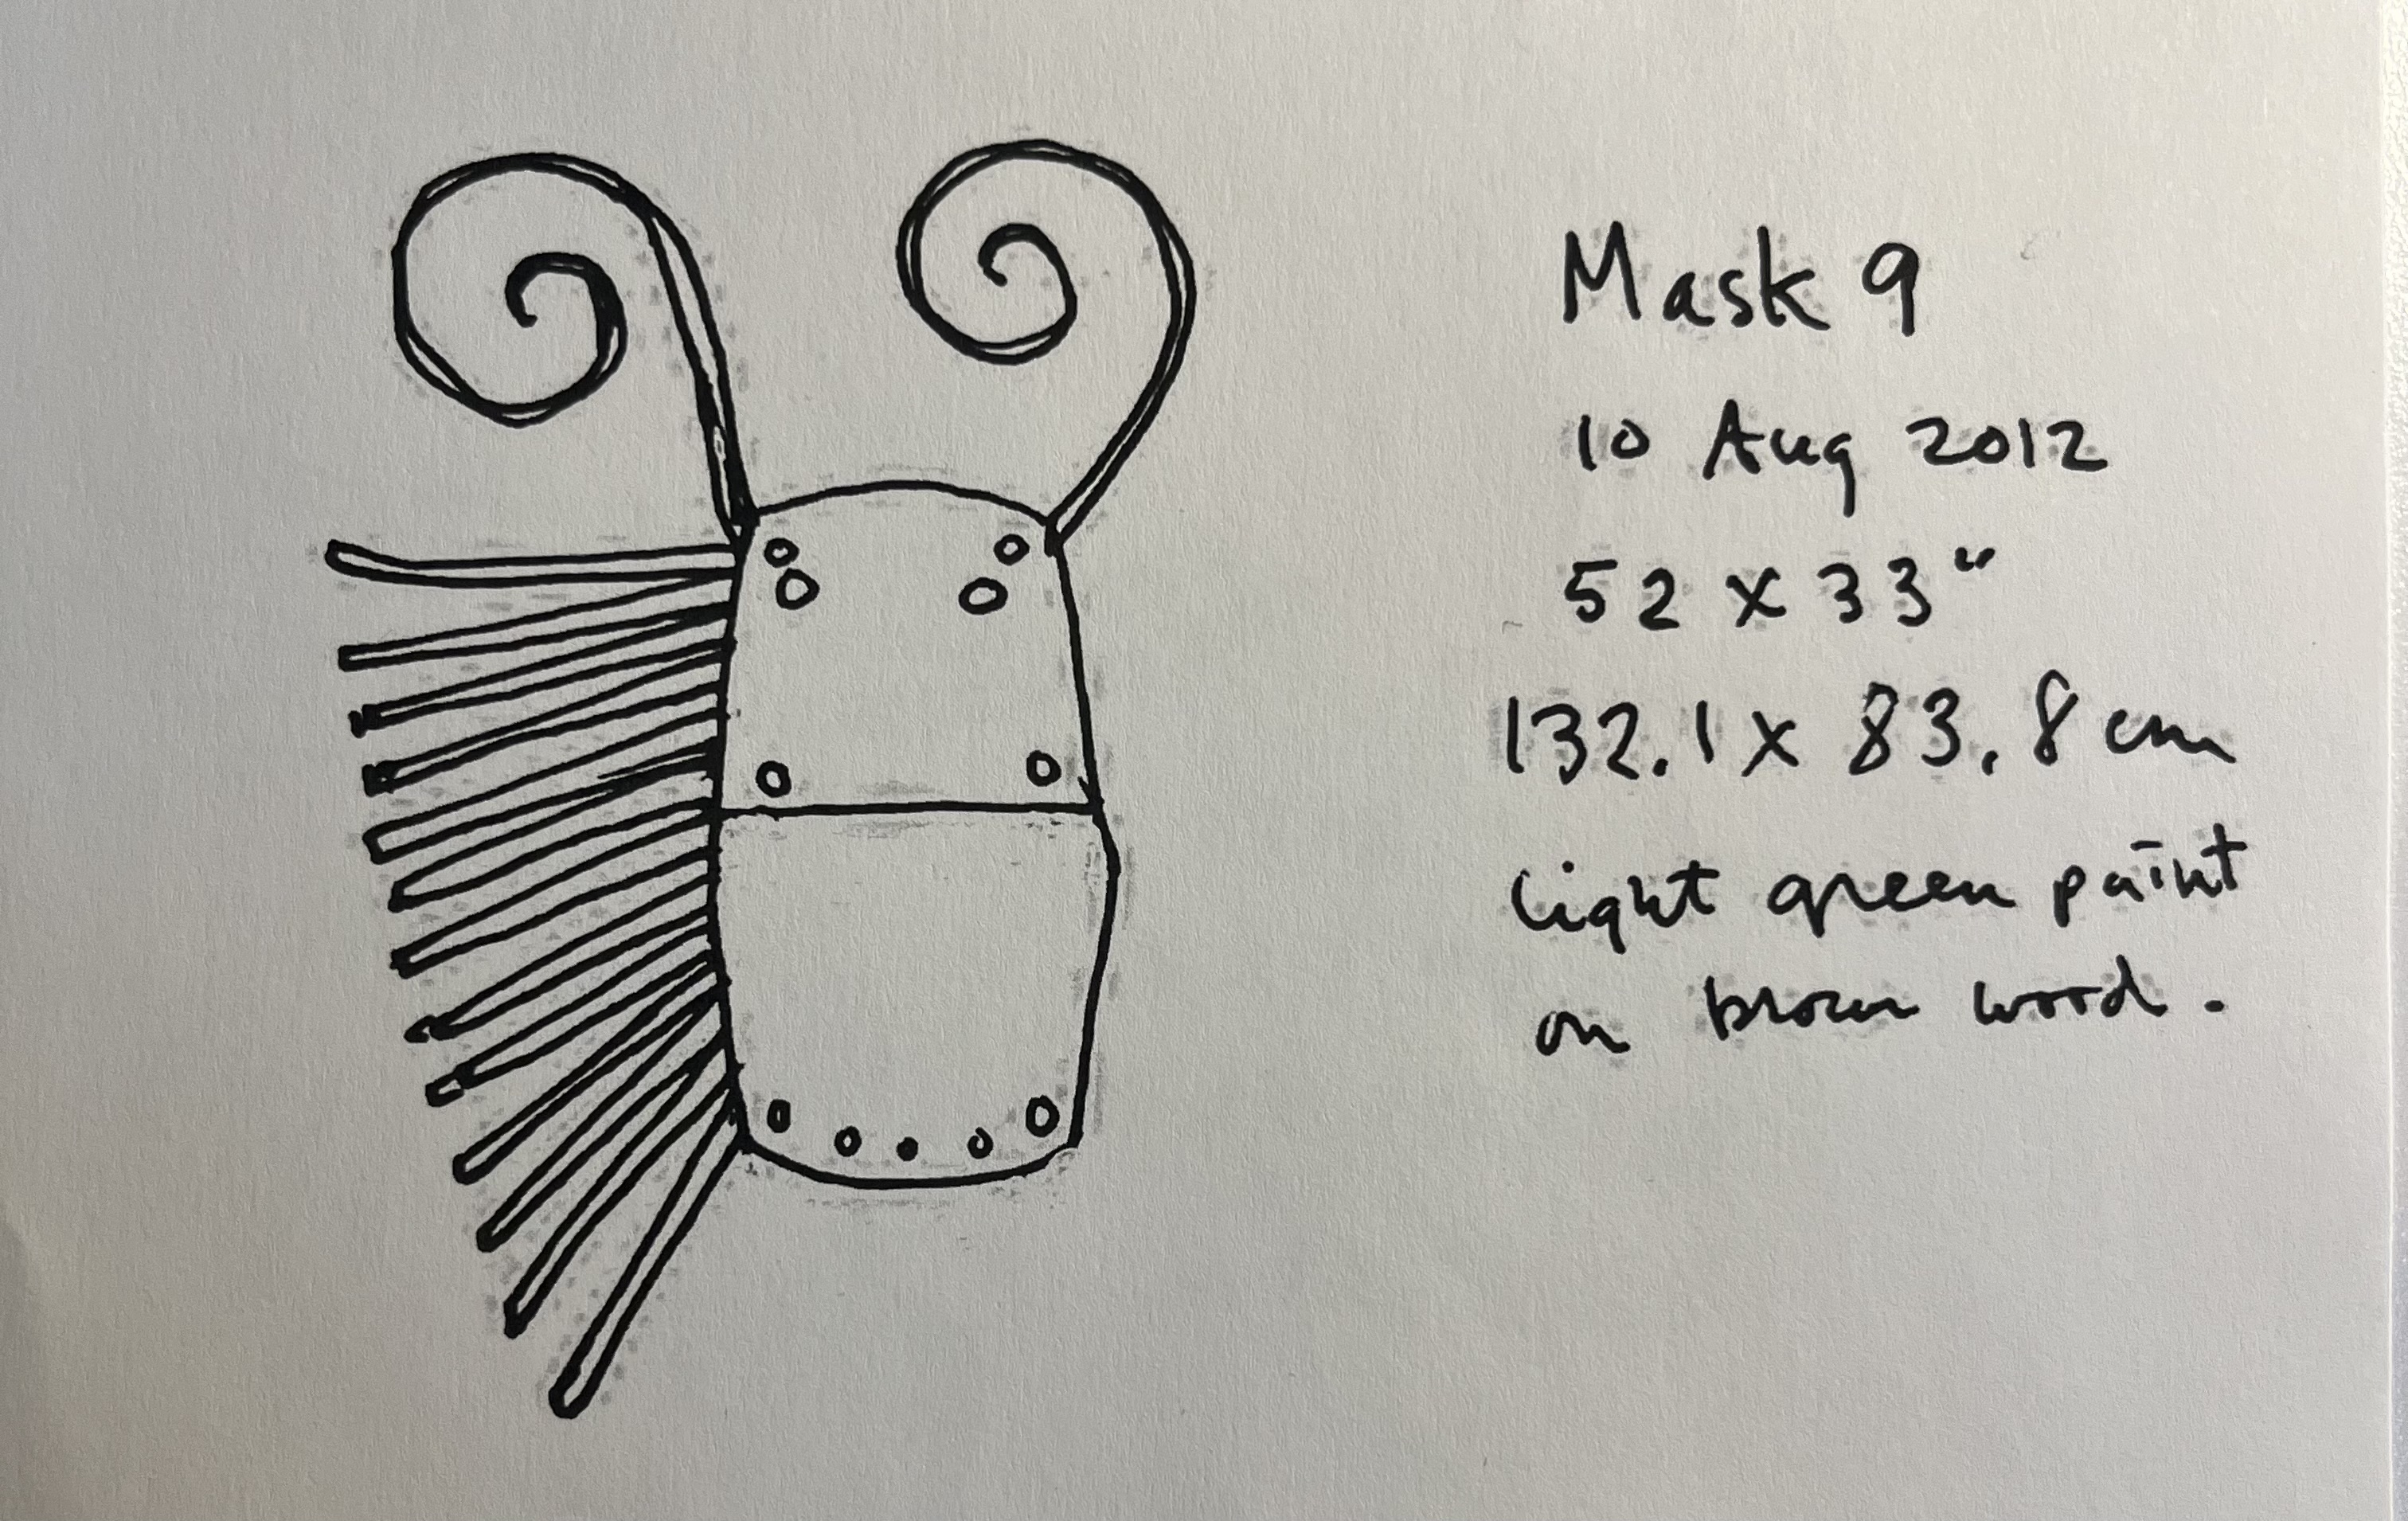 Mask 9
10 Aug 2012
52 x 33"
132.1 x 83.8 cm
light green paint
on brown wood.